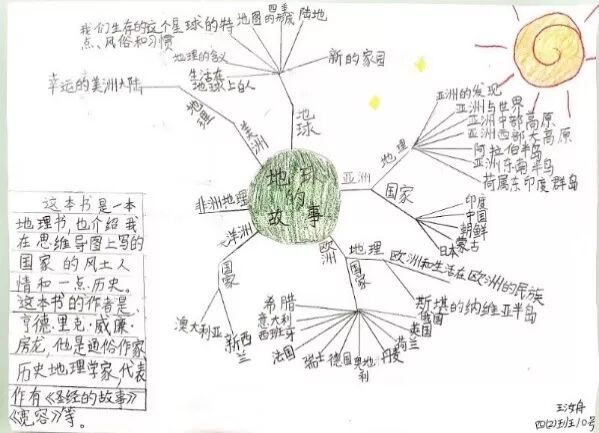 我们生存的这个星球的特
点、风俗和习惯
地图
的形成
陆地
地理的含义
新的家园
生活在
地球上的人
地球
幸运的美洲大陆
地理
美洲
地球
的
故事
亚洲
地理
亚洲的发现
亚洲与世界
亚洲中部高原
亚洲西部大高原
阿拉伯半岛
亚洲东南半岛
荷属东印度群岛
国家
印度
中国
朝鲜
蒙古
日本
非洲地理
大洋洲
国家
澳大利亚
新西兰
欧洲
地理
欧洲和生活在欧洲的民族
斯堪的纳维亚半岛
国家
希腊
意大利
西班牙
法国
瑞士
德国
奥地利
丹麦
荷兰
英国
俄国
这本书是一本
地理书,也介绍我
在思维导图上写的
国家的风土人
情和一点历史。
这本书的作者是
亨德.里克.威廉.
房龙,他是通俗作家
历史地理学家,代表
作有《圣经的故事》
《宽容》等。
四(2)班10号